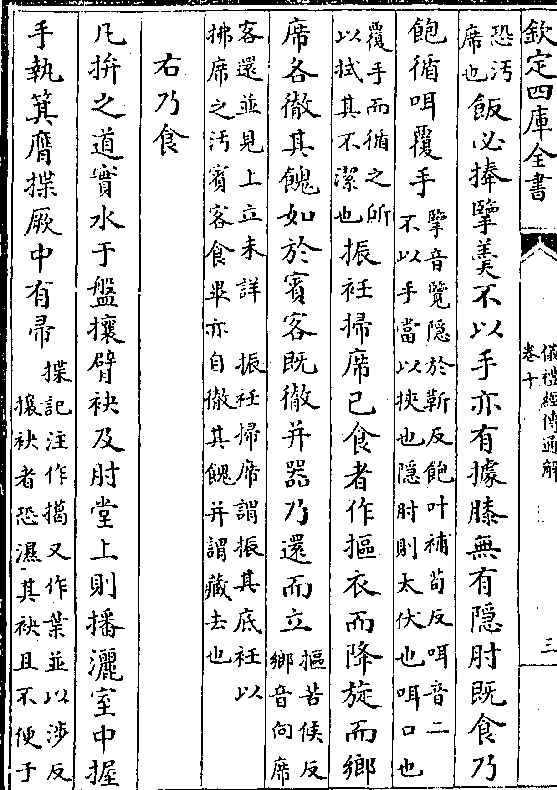 欽定四庫全書
儀禮經傳通解
卷十
三
恐污
席也
飯必捧擥羹不以手亦有據膝無有隠肘既食乃
飽循咡覆手
擥音覽隠於靳反飽叶補茍反咡音二
不以手當以挾也隠肘則太伏也咡口也
覆手而循之所
以拭其不潔也
振衽掃席已食者作摳衣而降旋而鄉
席各徹其餽如於賓客既徹并器乃還而立
摳苦侯反
鄉音向席
客還並見上立未詳 振衽掃席謂振其底衽以
拂席之污賓客食畢亦自徹其餽并謂藏去也
右乃食
凡拚之道實水于盤攘臂袂及肘堂上則播灑室中握
手執箕膺揲厥中有帚
揲記注作擖又作葉並以涉反
攘袂者恐濕其袂且不便于